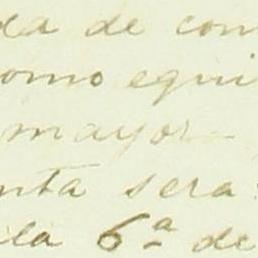 da de com
como equi
mayor
nta sera
la 6ª de